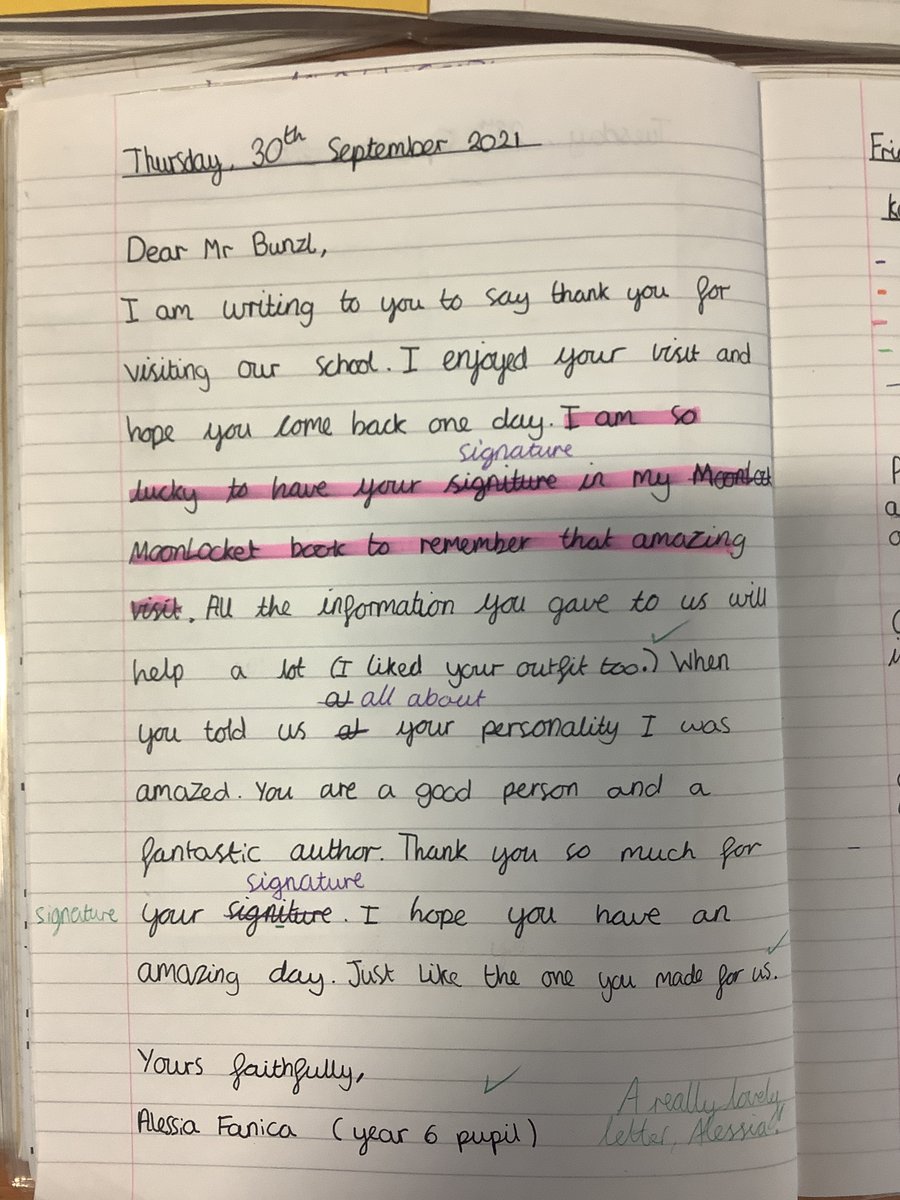 Thursday, 30th September 2021
Dear Mr Bunzl,
I am writing to you to say thank you for
visiting our school. I enjoyed your visit and
hope you come back one day. I am so
signature
lucky to have your signiture in my MoonLock
MoonLocket book to remember that amazing
visit. All the information you gave to us will
help a lot (I liked your outfit too.) When
at all about
you told us at your personality I was
amazed. You are a good person and a
fantastic author. Thank you so much for
signature
signature your signiture. I hope you have an
amazing day. Just like the one you made for us.
Yours faithfully,
Alessia Fanica (year 6 pupil)
A really lovely
letter, Alessia!